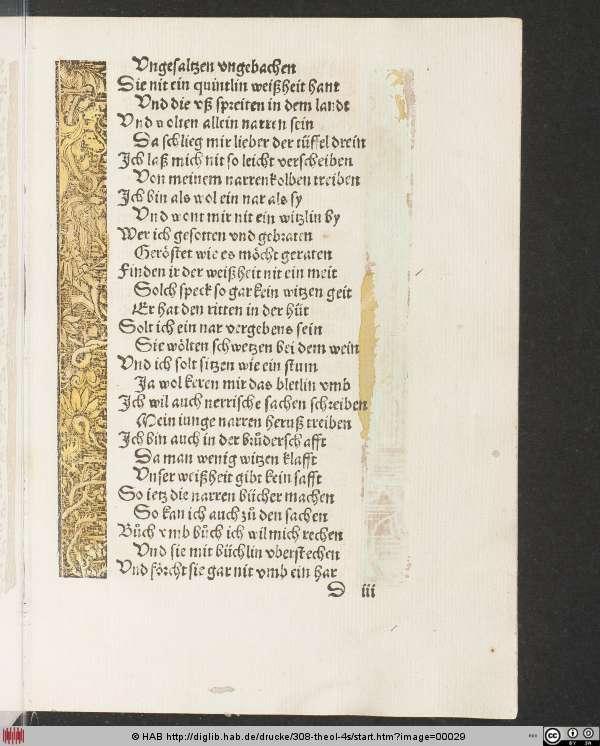 Vngesaltzen vngebachen
Die nit ein quintlin weißheit hant
Vnd die vß spreiten in dem landt
Vnd wolten allein narren sein
Da schlieg mir lieber der tüffel drein
Ich laß mich nit so leicht verscheiben
Von meinem narrenkolben treiben
Ich bin als wol ein nar als sy
Vnd wont mir nit ein witzlin by
Wer ich gesotten vnd gebraten
Geröstet wie es möcht geraten
Finden ir der weißheit nit ein meit
Solch speck so gar kein witzen geit
Er hat den ritten in der hüt
Solt ich ein nar vergebens sein
Sie wölten schwetzen bei dem wein
Vnd ich solt sitzen wie ein stum
Ja wol keren mir das bletlin vmb
Ich wil auch nerrische sachen schreiben
Mein iunge narren heruß treiben
Ich bin auch in der brüderschafft
Da man wenig witzen klafft
Vnser weißheit gibt kein safft
So ietz die narren bücher machen
So kan ich auch zů den sachen
Bůch vmb bůch ich wil mich rechen
Vnd sie mit büchlin vberstechen
Vnd förcht sie gar nit vmb ein har
D iii
© HAB http://diglib.hab.de/drucke/308-theol-4s/start.htm?image=00029